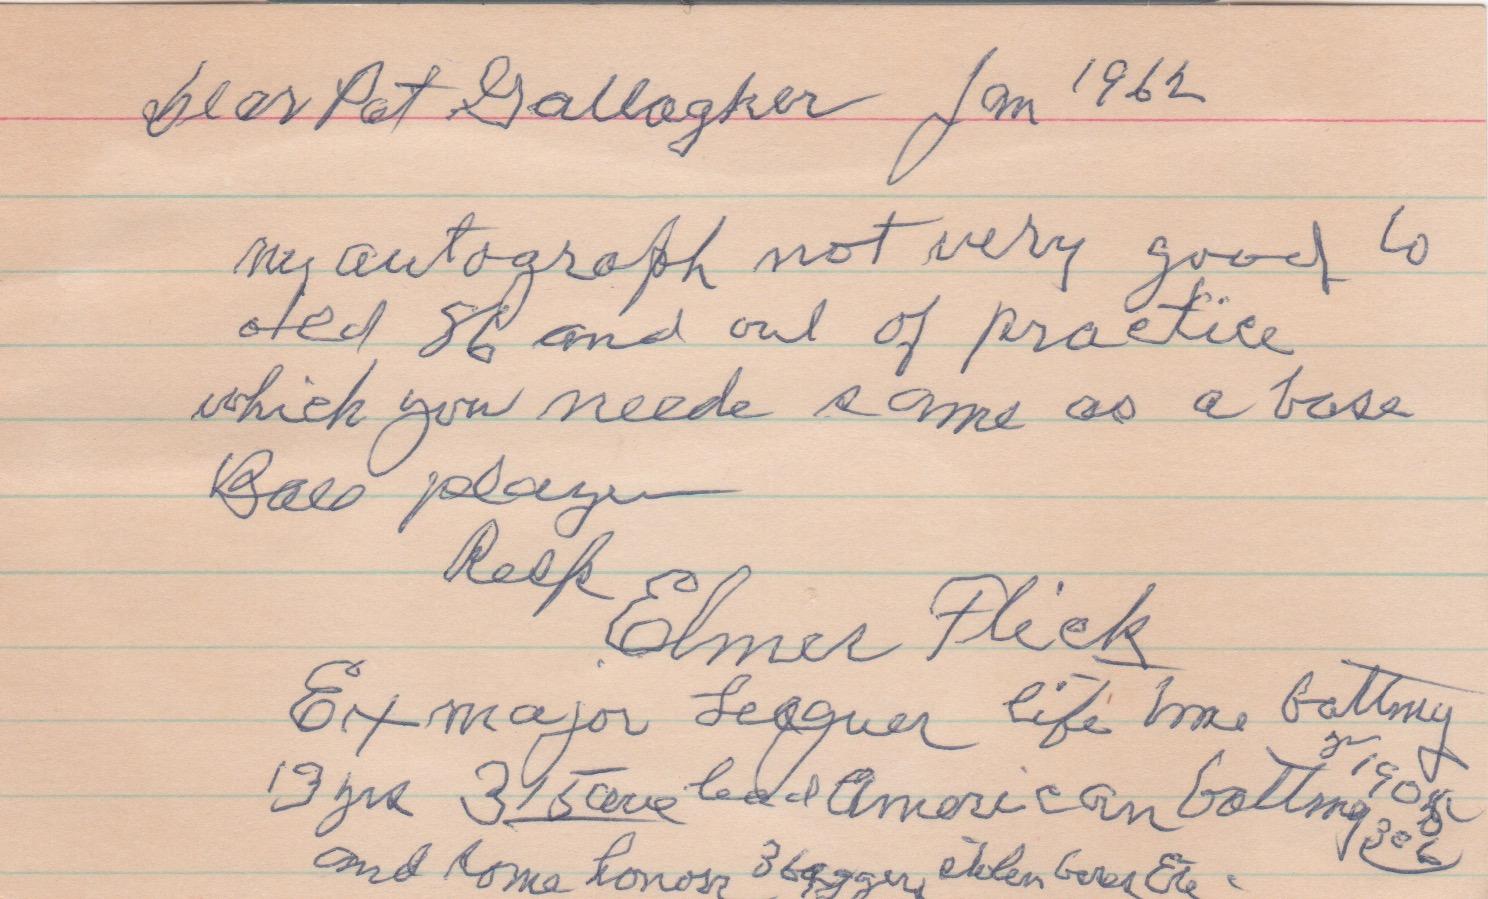 Dear Pat Gallagher Jan 1962
my autograph not very good to
old 86 and out of practice
which you neede same as a base
Ball player
Resp
Elmer Flick
Ex major Leaguer life time batting
13 yrs 315 ave lead American batting
in 1905
306
and some honors 3 baggers, stolen bases Etc.